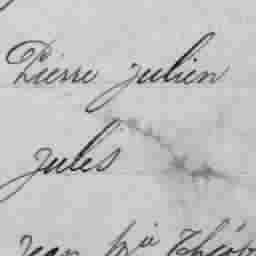 Pierre Julien
Jules
Jean